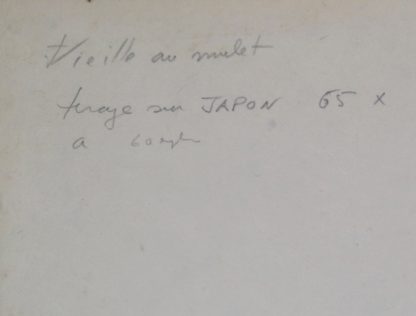 Vieille au mulet
tirage sur JAPON 65 x
a 60